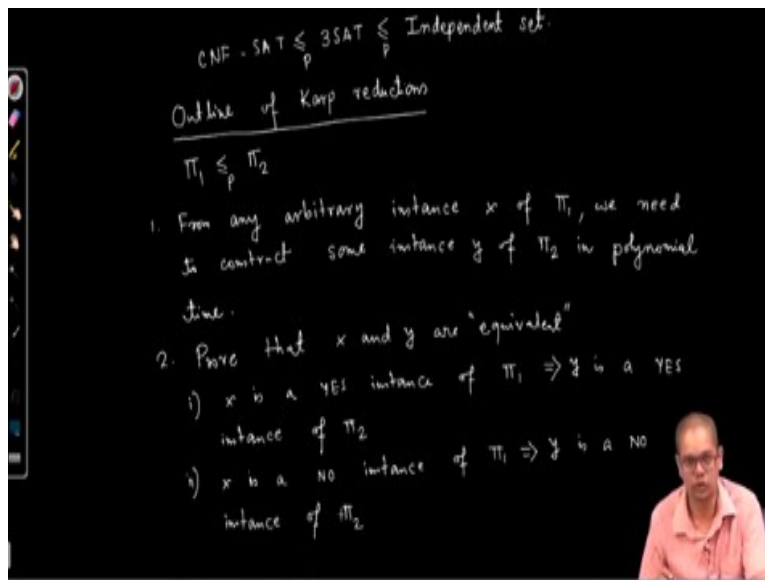 CNF-SAT ≤p 3SAT ≤p Independent set.
Outline of Karp reductions
Π1 ≤p Π2
1. From any arbitrary instance x of Π1, we need
to construct some instance y of Π2 in polynomial
time.
2. Prove that x and y are "equivalent"
i) x is a YES instance of Π1 ⇒ y is a YES
instance of Π2
ii) x is a NO instance of Π1 ⇒ y is a NO
instance of Π2